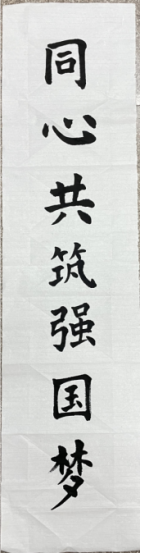 同心共筑强国梦